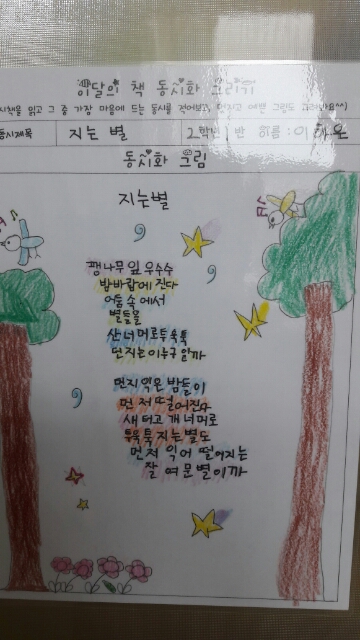 이달의 책 동시화 그리기
시책을 읽고 그 중 가장 마음에 드는 동시를 적어보고, 멋지고 예쁜 그림도 그려봐요^^)
동시제목 지는 별 2학년 반 이름:
동시화 그림
지는별
팽나무잎 우수수
밤바람에 진다
어둠 속에서
별들을
산 너머로 투욱툭
던지는 이 누구일까
먼저 익은 밤들이
먼저 떨어진다
새터고개 너머로
투욱툭 지는 별도
먼저 익어 떨어지는
잘 여문 별이까